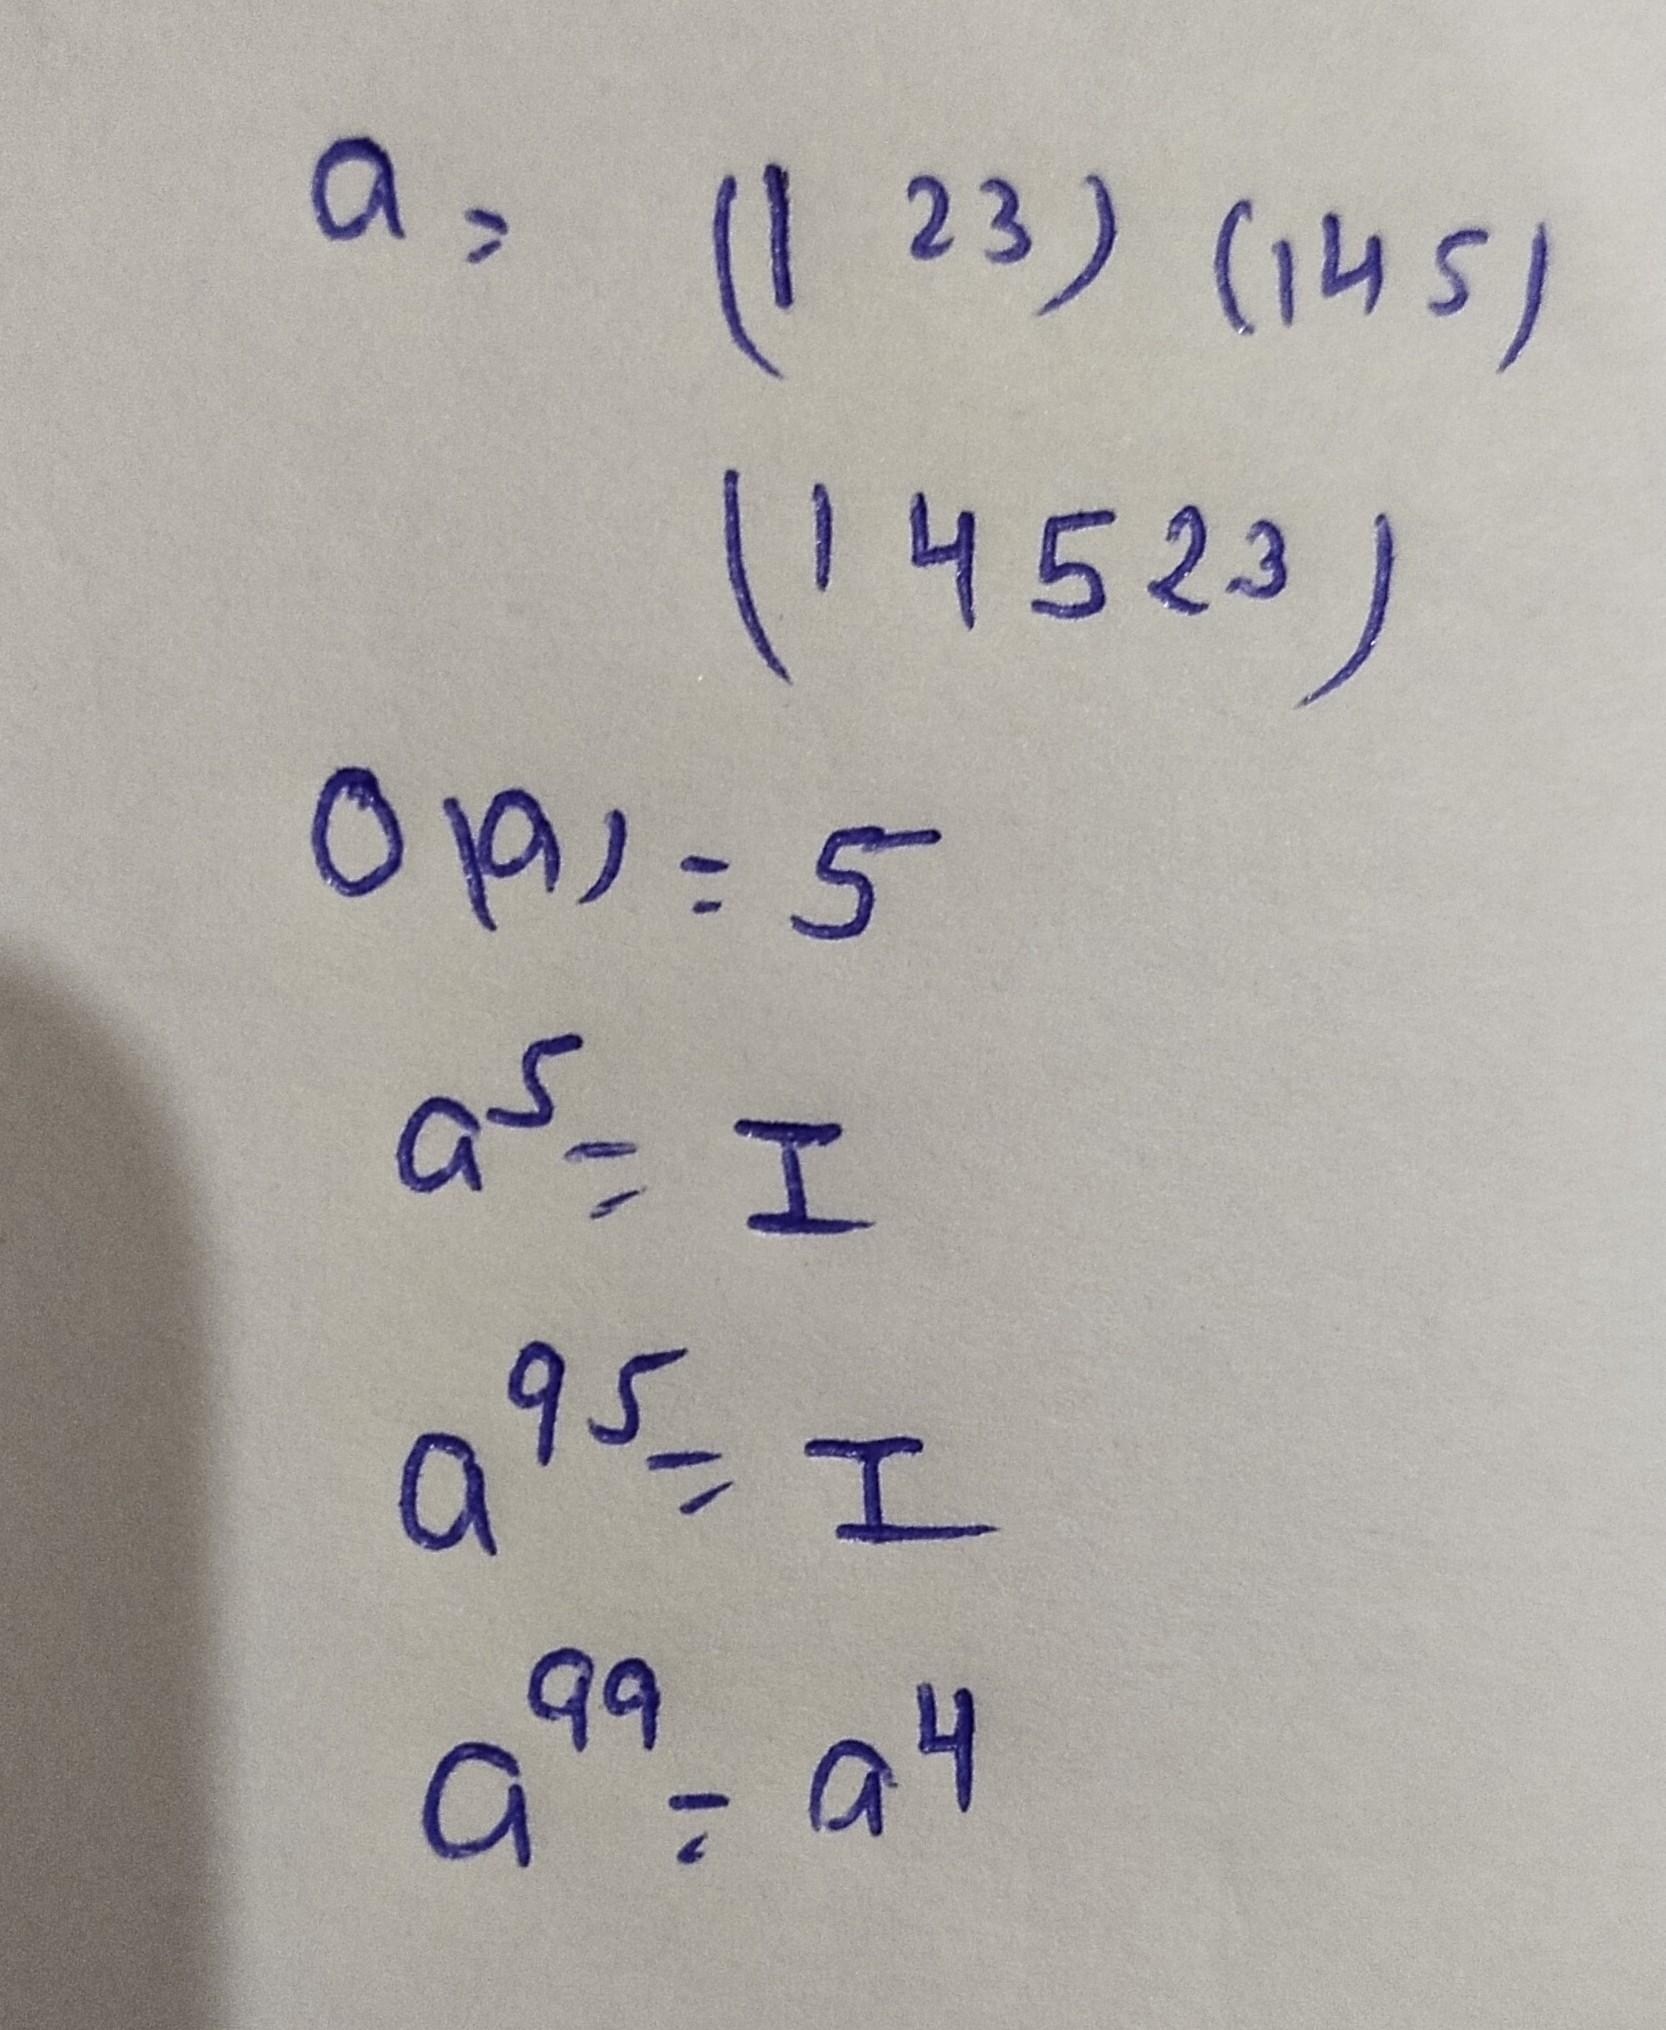 a = (1 2 3) (1 4 5)
(1 4 5 2 3)
O(a) = 5
a⁵ = I
a⁹⁵ = I
a⁹⁹ = a⁴